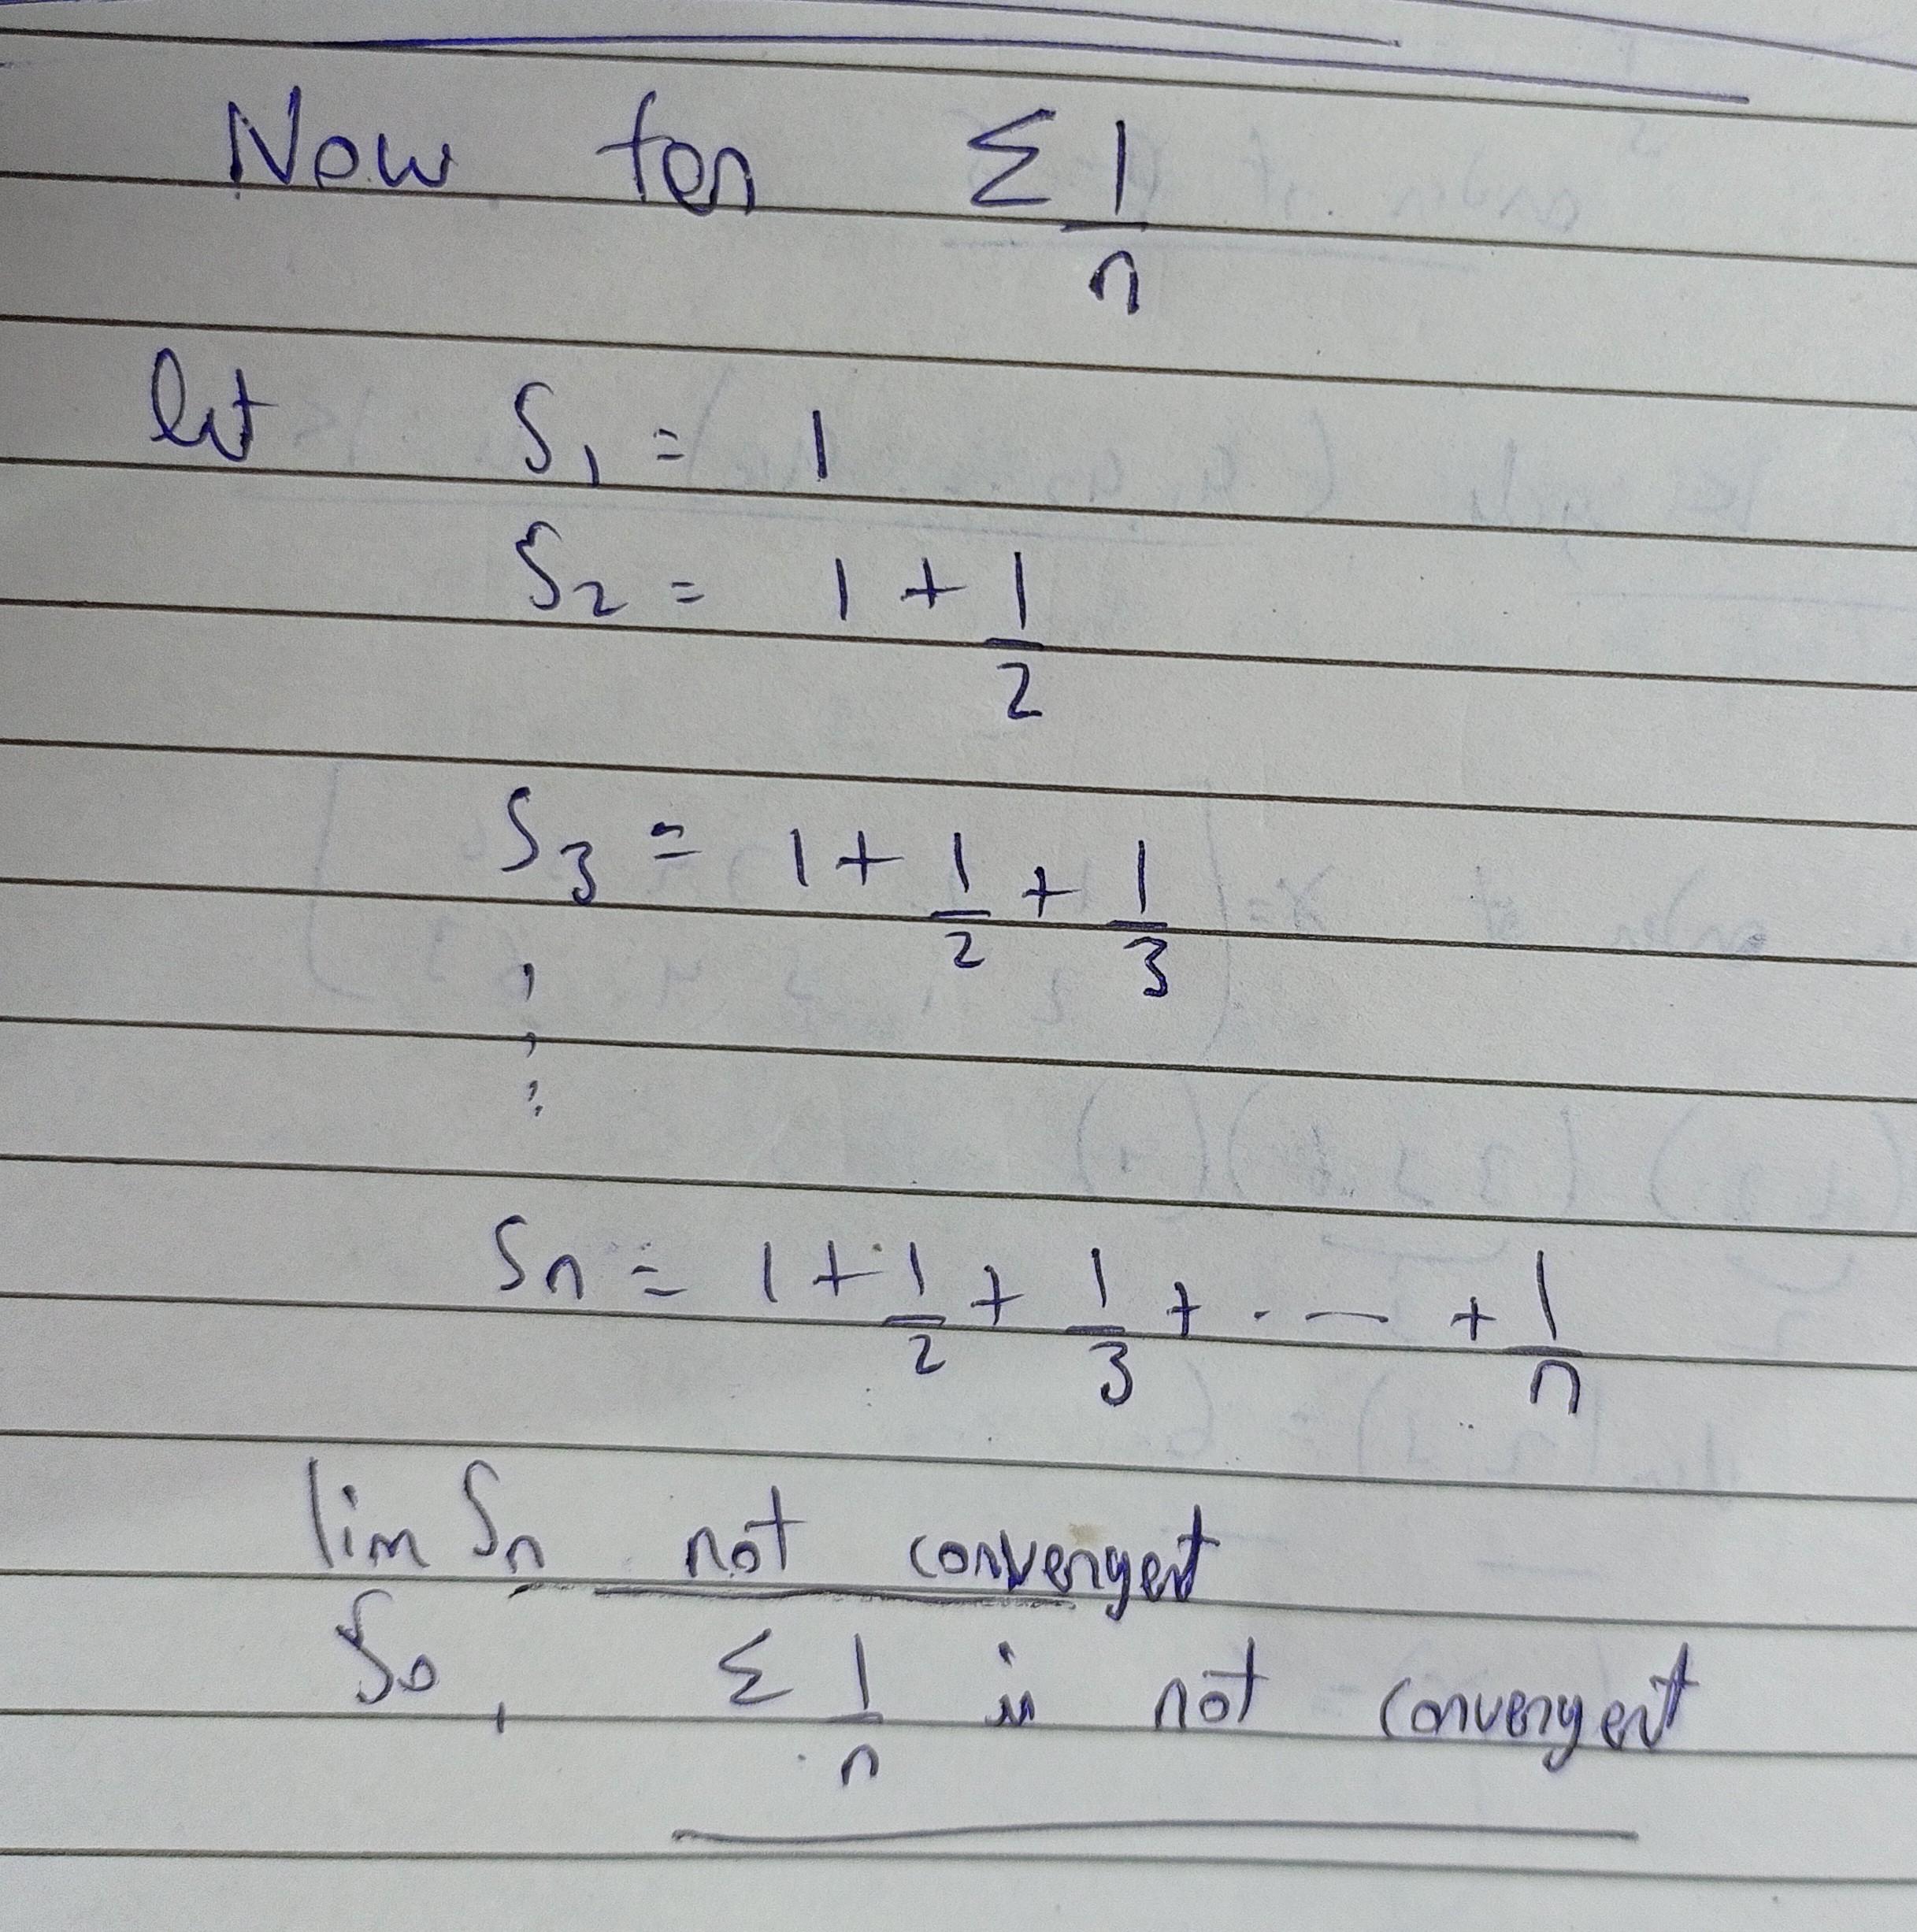 Now for Σ 1/n
let S₁ = 1
S₂ = 1 + 1/2
S₃ = 1 + 1/2 + 1/3
⋮
Sn = 1 + 1/2 + 1/3 + . — + 1/n
lim Sn not convergent
So, Σ 1/n is not convergent